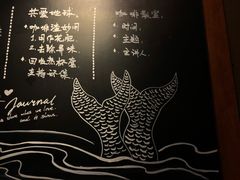 共爱地球
·咖啡渣妙用
1.园作花肥
2.去除异味
3.回收热杯套
支持环保
咖啡教室
·时间
·主题
·主讲人
Journal